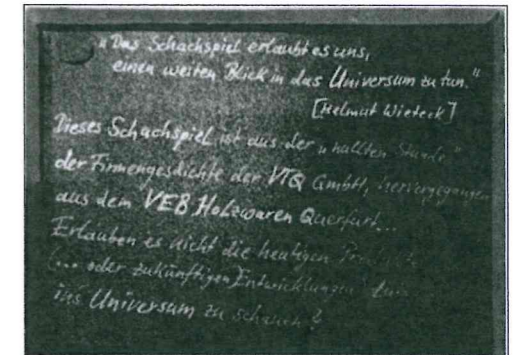 "Das Schachspiel erlaubt es uns,
einen weiten Blick in das Universum zu tun."
[Helmut Wieteck]
Dieses Schachspiel ist aus der
der Firmengeschichte der VTQ GmbH, hervorgegangen
aus dem VEB Holzwaren Querfurt...
Erlauben es nicht die heutigen
(... oder zukünftigen Entwicklungen
ins Universum zu schauen?